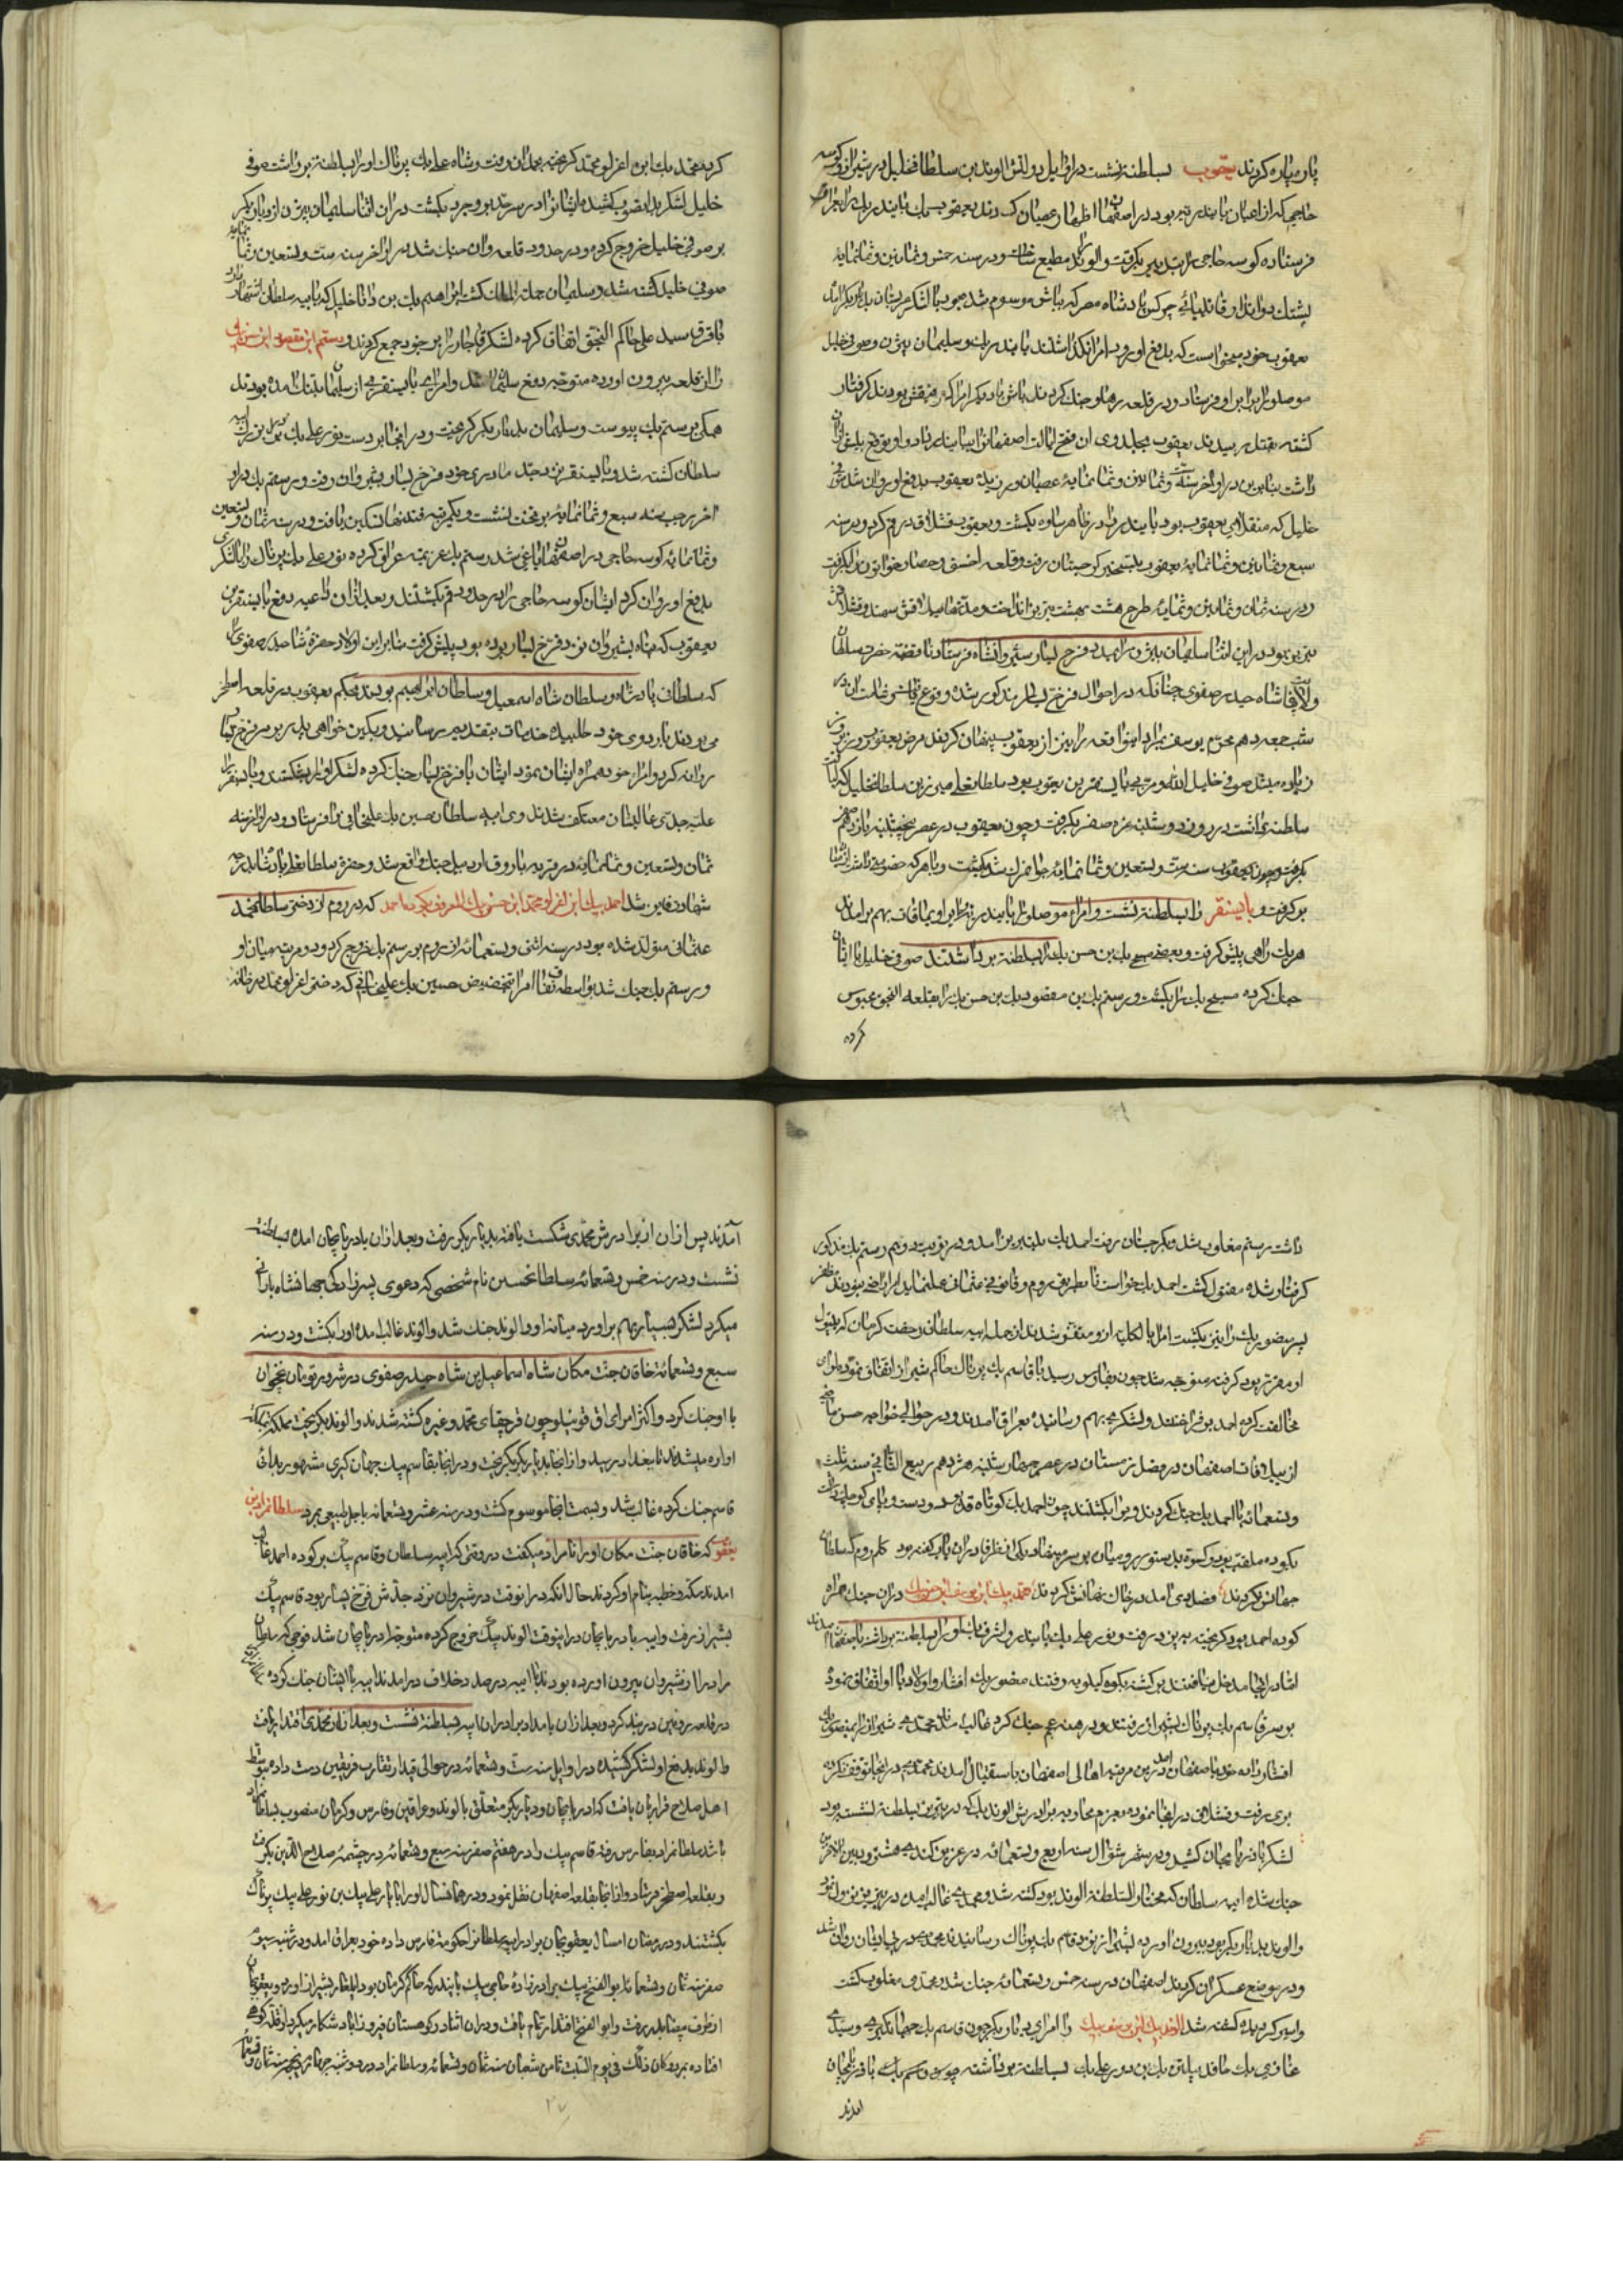 پاره پاره کردند یعقوب بسلطنت نشست در اوایل دولتش الوند بن سلطان خلیل در شیراز و کوسه
حاجی که از اعیان بایندریه بود در اصفهان اظهار عصیان کردند یعقوب بیک بایندر بیک را بعراق
فرستاده کوسه حاجی را بتدبیر بگرفت و الوند مطیع شد و در سنه خمس و ثمانین و ثمانمایه
یشبک دواتدار قایتبای چرکس پادشاه مصر که بباش موسوم شد چون با لشکر بدیار بکر آمد
یعقوب خود میخواست که بدفع او رود امرا نگذاشتند بایندر بیک و سلیمان بیژن و صوفی خلیل
موصلو را برابر او فرستاد و در قلعه رها و جنگ کردند باش با دیگر امرا که رفیقش بودند گرفتار
کشته بقتل رسیدند یعقوب بجلدوی آن فتح ایالت اصفهان را ببایندر داد و او توقع بیش از آن
داشت بنابرین در اواخر سنه ست و ثمانین و ثمانمایه عصیان ورزید یعقوب بدفع او روان شد صوفی
خلیل که منقلای یعقوب بود بایندر را در ظاهر ساوه بکشت و یعقوب قشلاق در قم کرد و در سنه
سبع و ثمانین و ثمانمایه یعقوب بتسخیر گرجستان رفت و قلعه اخسق و حصار خواتون را بگرفت
و در سنه ثمان و ثمانین و ثمانمایه طرح هشت بهشت تبریز انداخت و مدتها ییلاقش سهند و قشلاقش
تبریز بود در این اثنا سلیمان بیژن را بمدد فرخ یسار بشیروانشاه فرستاد تا قضیه حضرت سلطان
ولایت پناه شاه حیدر صفوی چنانکه در احوال فرخ یسار مذکور شده وقوع یافت
شب جمعه دهم محرم یوسف بمرد این واقعه را نیز از یعقوب پنهان کردند مرض یعقوب روز بروز
زیاده میشد صوفی خلیل الله و مربی بایسنقر بن یعقوب بود سلطان علی میرزا بن سلطان خلیل که گمان
سلطنت داشت در روز دوشنبه غره صفر بگرفت و چون یعقوب در عصر پنجشنبه یازدهم صفر
بگرفت و چون یعقوب سنه ست و تسعین و ثمانمایه جوانمرگ شد بکشت و با هر که خصومتی داشت
برگرفت و بایسنقر را بسلطنت نشست و امرای موصلو را بایندریه برابر او بمافات بهم برآمدند
هر یک راهی پیش گرفت و بعضی مسیح بیک بن حسن بیک را بسلطنت برداشتند صوفی خلیل با ایشان
جنگ کرده مسیح بیک را بکشت و رستم بیک بن مقصود بیک بن حسن بیک را بقلعه النجق محبوس
کرده
کرد محمد بیک ابن اغرلو محمد گریخته بهمدان رفت و شاه علی بیک پرناک او را بسلطنت برداشت صوفی
خلیل لشکر بدان صوب کشید و ایشانرا در سرحد بروجرد بکشت در آن اثنا سلیمان بیژن از دیار بکر
بر صوفی خلیل خروج کرد و در حدود قلعه وان جنگ شد در اواخر سنه ست و تسعین و ثمانمایه
صوفی خلیل کشته شد و سلیمان جملة الملک گشت ابراهیم بیک بن دانا خلیل که بایبه سلطان اشتهار دارد
با قرق سید علی حاکم النجق اتفاق کرده لشکر قاجار را بر خود جمع کردند و رستم ابن مقصود ابن حسن بیک
را از قلعه بیرون آورده متوجه دفع سلیمان شدند و امرای بایسنقر که از سلیمان بتنگ آمده بودند
همگی برستم بیک پیوست و سلیمان بدیار بکر گریخت و در آنجا بر دست نور علی بیک برادر بزرگ ایبه
سلطان کشته شد و بایسنقر نزد جد مادری خود فرخ یسار بشیروان رفت و رستم بیک در اواخر
اخر رجب سنه سبع و ثمانمایه بر تخت نشست و یکمرتبه فتنها تسکین یافت و در سنه ثمان و تسعین
و ثمانمایه کوسه حاجی در اصفهان یاغی شد رستم بیک عزیمت عراق کرده نور علی بیک پرناک را با لشکری
بدفع او روان کرد ایشان کوسه حاجی را در حدود قم بکشتند و بعد از آن داعیه دفع بایسنقر بن
یعقوب که پناه بشیروان نزد فرخ یسار برده بود پیش گرفت بنا برین اولاد حضرت شاه حیدر صفوی را
که سلطان پادشاه و سلطان شاه اسمعیل و سلطان ابراهیم بودند بحکم یعقوب در قلعه اصطخر
می بودند باردوی خود طلبیده خدمات بتقدیم رسانید و بکین خواهی پدر بر سر فرخ یسار
روانه کرد و امراء خود همراه ایشان نمود ایشان با فرخ یسار جنگ کرده لشکر او را بشکستند و بایسنقر را
علیه جدی عالیشان معتکف شدند وی ایبه سلطان حسین بیک علیخانی را فرستاد و در اواخر سنه
ثمان و تسعین و ثمانمایه در قریه بارووق اردبیل جنگ واقع شد و حضرت سلطان علی پادشاه بدرجه
شهادت فایز شد احمد بیک ابن اغرلو محمد ابن حسن بیک المعروف بکوده احمد که در روم از دختر سلطان محمد
عثمانی متولد شده بود در سنه اثنی و تسعمائه از روم بر رستم بیک خروج کرد و دو مرتبه میان او
و رستم بیک جنگ شد بواسطه نفاق امرا بتخصیص حسین بیک علیخانی که دختر اغرلو محمد در خانه
داشت رستم مغلوب شد و بگرجستان رفت احمد بیک بتبریز آمد و در نوبت دوم رستم بیک مذکور
گرفتار شده مقتول گشت احمد بیک خواست تا بطریق روم و قانون عثمانی عمل نماید امرا راضی نبودند مظفر
پسر منصور بیک را نیز بکشت امرا بالکلیه ازو متنفر شدند از جمله ایبه سلطان رخصت کرمان که بتیول
او مقرر بود گرفته متوجه شد چون بفارس رسید با قاسم بیک پرناک حاکم شیراز اتفاق نموده لوای
مخالفت کرده احمد برافراختند و لشکری بهم رسانیده بعراق آمدند و در حوالی خواجه حسن ماضی
از ییلاقات اصفهان در فصل زمستان در عصر چهارشنبه هژدهم ربیع الثانی سنه ثلث
و تسعمائه با احمد بیک جنگ کردند و ویرا بکشتند چون احمد بیک کوتاه قد بود و دست و پای کوچک داشت
بکوده ملقب بود
جهان نگردند فصل وی آمد در خاک نهانش کردند محمد بیک ابن یوسف ابن حسن بیک در آن جنگ همراه
کوده احمد بود گریخته به یزد رفت و نور علی بیک بایندر و اشرف بیک او را بسلطنت برداشته باصفهان آمدند
اما در آنجا مدخل نیافتند برگشته بکوه کیلویه رفتند منصور بیک افشار و اولاد با او اتفاق نمود
بر سر قاسم بیک پرناک بشیراز رفتند و درهم جنگ کرد غالب ماند محمدی شیراز را بمنصور بیک
افشار داده خود باصفهان آمد درین مرتبه اهالی اصفهان باستقبال آمدند محمدی در آنجا توقف نکرده
بری رفت و قشلاق در آنجا نموده بعزم محاربه برادرش الوند بیک که در تبریز بسلطنت نشسته بود
لشکر باذربایجان کشید و در شهر شوال سنه اربع و تسعمائه در عزیز کندی هشترود بین الاخوین
جنگ شد ایبه سلطان که مختار السلطنة الوند بود کشته شد و محمدی غالب آمده در تبریز نزول نمود
والوند بدیار بکر بود بیرون آورده
و در موضع عسکران کزندر اصفهان در سنه خمس و تسعمائه جنگ شد محمدی مغلوب گشت
و اسیر گردیده کشته شد الوند بیک ابن یوسف بیک را امرای دیار بکر چون قاسم بیک جهانگیری و سیدی
غازی بیک بن دور علی بیک بسلطنت برداشته چون قاسم بیک باذربایجان
آمدند
آمدند پس از آن از برادرش محمدی شکست یافته بدیار بکر رفت و بعد از آن باذربایجان آمده بسلطنت
نشست و در سنه خمس و تسعمائه سلطان حسین نام شخصی که دعوی پسرزادگی جهانشاه بارانی
میکرد لشکر بسیار بهم برآورد میانه او و الوند جنگ شد و الوند غالب آمده او را بکشت و در سنه
سبع و تسعمائة خاقان جنت مکان شاه اسماعیل بن شاه حیدر صفوی در شرور تومان نخجوان
با او جنگ کرد و اکثر امرای اق قوینلو چون قرچقای محمد و غیره کشته شدند و الوند بگریخت
اواره میشد تا ببغداد رسید و از آنجا بدیار بکر بگریخت و در آنجا بقاسم بیک جهان گیری مشهور
قاسم جنگ کرده غالب شد و بسمت آنجا موسوم گشت و در سنه عشر و تسعمائه باجل طبیعی بمرد سلطان مراد بن
یعقوب که خاقان جنت مکان او را نامراد میگفت در وقتی که ایبه سلطان و قاسم بیک بر کوده احمد غالب
آمدند سکه و خطبه بنام او کردند حال آنکه در آنوقت در شیروان نزد جدش فرخ یسار بود قاسم بیک
بشیراز رفت و ایبه باذربایجان در اینوقت الوند بیک خروج کرده متوجه اذربایجان شد فوجی که سلطان
مراد را از شیروان بیرون آورده بودند با ایبه در صدد خلاف درآمدند ایبه با ایشان جنگ کرده
در قلعه رودین دربند کرد و بعد از آن بامداد ایبه بسلطنت نشست و بعد از آن محمدی اقتدار یافت
و الوند بدفع او لشکر کشیده در اوایل سنه ست و تسعمائه در حوالی قیدار تقارب فریقین دست داد بتوسط
اهل صلاح قرار بآن یافت که آذربایجان و دیار بکر متعلق بالوند و عراقین و فارس و کرمان منصوب بسلطان مراد
باشد سلطان مراد بفارس رفته قاسم بیک را در هفتم صفر سنه سبع و تسعمائه در چشمه صلاح الدین بگرفت
و بقلعه اصطخر فرستاد و از آنجا بقلعه اصفهان نقل نمود و در همانسال او را با یار علی بیک بن نور علی بیک پرناک
بکشتند و در رمضان امسال یعقوبجان برادر ایبه سلطان را حکومت فارس داده خود بعراق آمد و در شنبه
صفر سنه ثمان و تسعمائه ابو الفتح بیک برادرزاده حاجی بیک بایندر که حاکم کرمان بود ایلغار بشیراز آورده و یعقوبجان
از طرف بیضا بدر رفت و ابو الفتح اقتدار تمام یافت و در آن اثنا در کوهستان فیروزآباد شکار میکرد از قله کوهی
افتاده بمرد و کان ذلک فی یوم السبت ثامن شعبان سنه ثمان و تسعمائه و سلطان مراد در دوشنبه